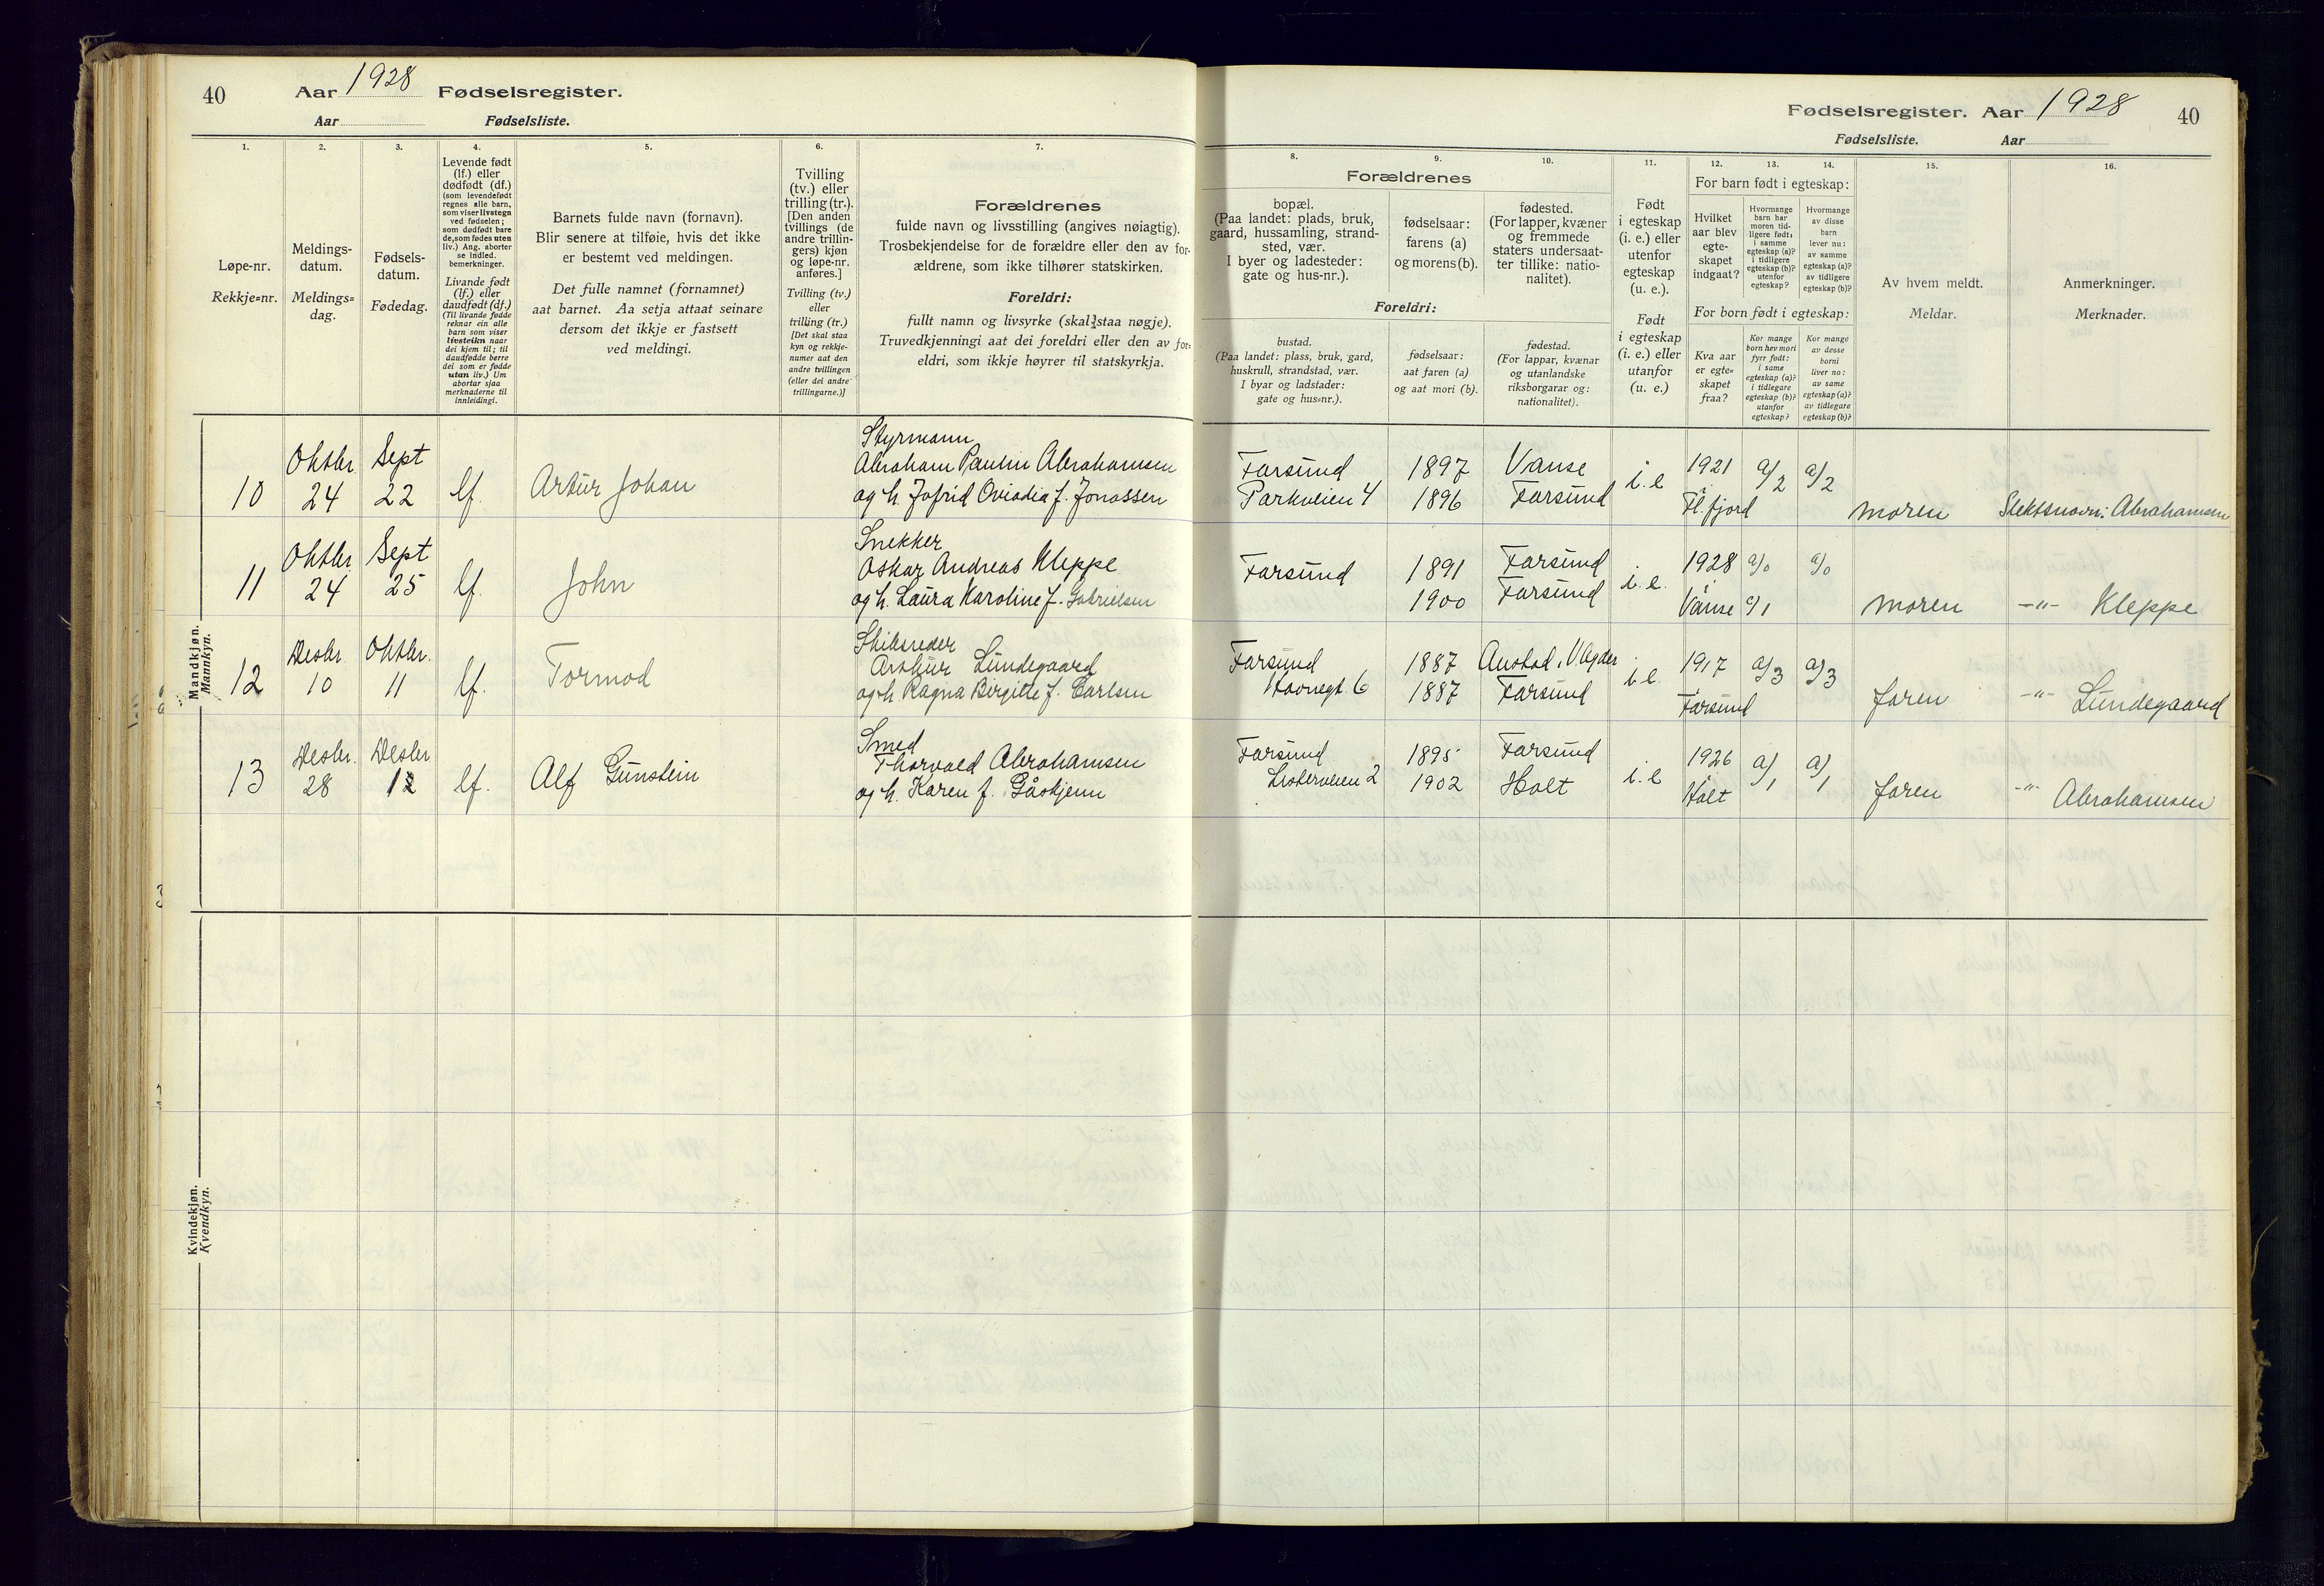 40 Aar 1928 Fødselsregister.
Aar Fødselsliste.
Fødselsregister. Aar 1928 40
Fødselsliste. Aar
1.
Løpe-nr.
Rekkje=nr.
2.
Meldings-
datum.
Meldings=
dag.
3.
Fødsels-
datum.
Fødedag.
4.
Levende født
(lf.) eller
dødfødt (df.)
(som levendefødt
regnes alle barn,
som viser livstegn
ved fødselen;
som dødfødt bare
de, som fødes uten
liv.) Ang. aborter
se indled.
bemerkninger.
Livande født
(lf.) eller
daudfødt (df.)
(Til livande fødde
reknar ein alle
barn som viser
livsteikn naar
dei kjem til; til
daudfødde berre
dei som er fødde
utan liv.) Um
abortar sjaa
merknaderne til
innleidingi.
5.
Barnets fulde navn (fornavn).
Blir senere at tilføie, hvis det ikke
er bestemt ved meldingen.
Det fulle namnet (fornamnet)
aat barnet. Aa setja attaat seinare
dersom det ikkje er fastsett
ved meldingi.
6.
Tvilling
(tv.) eller
trilling (tr.).
[Den anden
tvillings (de
andre trillin-
gers) kjøn
og løpe-nr.
anføres.]
Tvilling (tv.)
eller
trilling (tr.)
[Det skal staa
kyn og rekkje-
numer aat den
andre tvillingen
(eller dei andre
trillingarne.)]
7.
Forældrenes
fulde navn og livsstilling (angives nøiagtig).
Trosbekjendelse for de forældre eller den av for-
ældrene, som ikke tilhører statskirken.
Foreldri:
fullt namn og livsyrke (skal staa nøgje).
Truvedkjenningi aat dei foreldri eller den av for=
eldri, som ikkje høyrer til statskyrkja.
8.
Forældrenes
bopæl.
(Paa landet: plads, bruk,
gaard, hussamling, strand-
sted, vær.
I byer og ladesteder:
gate og hus-nr.).
Foreldri:
bustad.
(Paa landet: plass, bruk, gard,
huskrull, strandstad, vær.
I byar og ladstader:
gate og hus=nr.).
9.
fødselsaar:
farens (a)
og morens (b).
fødselsaar:
aat faren (a)
og aat mori (b).
10.
fødested.
(For lapper, kvæner
og fremmede
staters undersaat-
ter tillike: natio-
nalitet).
fødestad.
(For lappar, kvænar
og utanlandske
riksborgarar og:
nationalitet).
11.
Født
i egteskap
(i. e.) eller
utenfor
egteskap
(u. e.).
Født
i egteskap
(i. e.) eller
utanfor
(u. e.)
For barn født i egteskap:
12.
Hvilket
aar blev
egte-
skapet
indgaat?
For born født i egteskap:
Kva aar
er egte=
skapet
fraa?
13.
Hvormange
barn har
moren tid-
ligere født:
i samme
egteskap (a)?
i tidligere
egteskap (b)?
utenfor
egteskap?
Kor mange
born hev mori
fyrr født:
i same
egteskap (a)?
i tidlegare
egteskap (b)?
utanfor
egteskap?
14.
Hvormange
av disse
barn
lever nu:
av samme
egteskap (a)?
av tidligere
egteskap (b)?
Kor mange
av desse
borni
liver no:
av same
egteskap (a)?
av tidlegare
egteskap (b)?
15.
Av hvem meldt.
Meldar.
16.
Anmerkninger.
Merknader.
Mandkjøn.
Mannkyn.
10 Oktbr 24 Sept 22 lf. Artur Johan
Styrmann
Abraham Paulin Abrahamsen
og h. Jofrid Oviadia f. Jonassen
Farsund 1897 Vanse i. e 1921 a/2 a/2
Parkveien 4 1896 Farsund Fl. fjord moren Slektsnavn: Abrahamsen
11 Oktbr 24 Sept 25 lf. John
Snekker
Oskar Andreas Kleppe
og h. Laura Karoline f. Gabrielsen
Farsund 1891 Farsund i. e. 1928 a/0 a/0
1900 Farsund Vanse c/1 moren -"- Kleppe
12 Desbr. 10 Oktbr. 11 lf. Tormod
Skibsreder
Arthur Lundegaard
og h Ragna Birgitte f. Carlsen
Farsund 1887 Austad, V Agder i. e. 1917 a/3 a/3
Havnegt. 6 1887 Farsund Farsund faren -"- Lundegaard
13 Desbr. 28 Desbr 12 lf. Alf Gunstein
Smed
Thorvald Abrahamsen
og h. Karen f. Gåskjenn
Farsund 1895 Farsund i. e 1926 a/1 a/1
Listerveien 2 1902 Holt Holt faren -"- Abrahamsen
Kvindekjøn.
Kvendkyn.